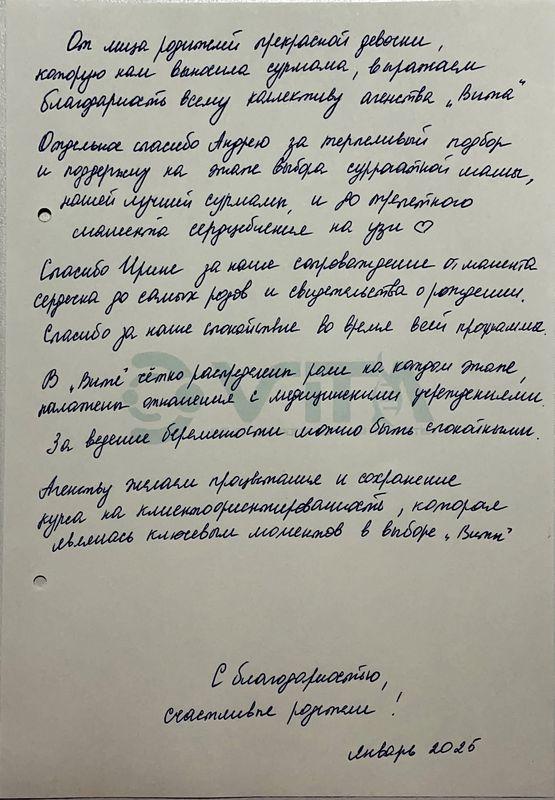 От лица родителей прекрасной девочки,
которую нам выносила сурмама, выражаем
благодарность всему коллективу агенства „Вита"
Отдельное спасибо Андрею за терпеливый подбор
и поддержку на этапе выбора суррогатной мамы,
нашей лучшей сурмамы, и до трепетного
момента сердцебиения на узи ♡
Спасибо Ирине за наше сопровождение от момента
сердечка до самых родов и свидетельства о рождении.
Спасибо за наше спокойствие во время всей программы.
В „Вите" чётко распределены роли на каждом этапе,
налажены отношения с медицинскими учреждениями.
За ведение беременности можно быть спокойными.
VITA
Агенству желаем процветания и сохранение
курса на клиентоориентированность, которая
являлась ключевым моментов в выборе „Виты"
С благодарностью,
счастливые родители!
Январь 2025